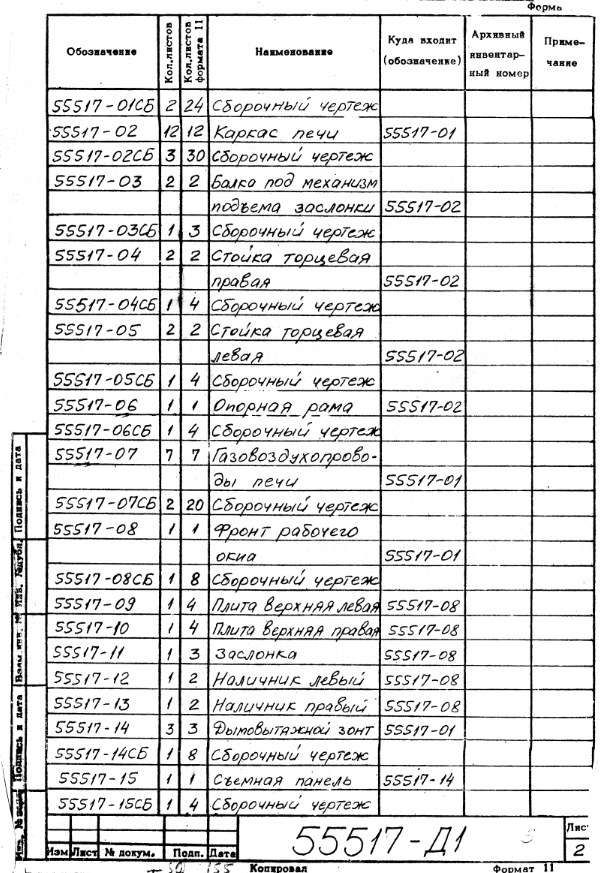 Формы
Обозначение Кол.листов Кол.листов формата 11 Наименование Куда входит (обозначение) Архивный инвентарный номер Примечание
55517-01СБ 2 24 Сборочный чертеж
55517-02 12 12 Каркас печи 55517-01
55517-02СБ 3 30 Сборочный чертеж
55517-03 2 2 Балка под механизм
подъема заслонки 55517-02
55517-03СБ 1 3 Сборочный чертеж
55517-04 2 2 Стойка торцевая
правая 55517-02
55517-04СБ 1 4 Сборочный чертеж
55517-05 2 2 Стойка торцевая
левая 55517-02
55517-05СБ 1 4 Сборочный чертеж
55517-06 1 1 Опорная рама 55517-02
55517-06СБ 1 4 Сборочный чертеж
55517-07 7 7 Газовоздухопрово-
ды печи 55517-01
55517-07СБ 2 20 Сборочный чертеж
55517-08 1 1 Фронт рабочего
окна 55517-01
55517-08СБ 1 8 Сборочный чертеж
55517-09 1 4 Плита верхняя левая 55517-08
55517-10 1 4 Плита верхняя правая 55517-08
55517-11 1 3 Заслонка 55517-08
55517-12 1 2 Наличник левый 55517-08
55517-13 1 2 Наличник правый 55517-08
55517-14 3 3 Дымовытяжной зонт 55517-01
55517-14СБ 1 8 Сборочный чертеж
55517-15 1 1 Съемная панель 55517-14
55517-15СБ 1 4 Сборочный чертеж
Подпись и дата
Взам инв. №
Подпись и дата
55517-Д1
Лис
2
Изм Лист № докум. Подп. Дата
Копировал Формат 11